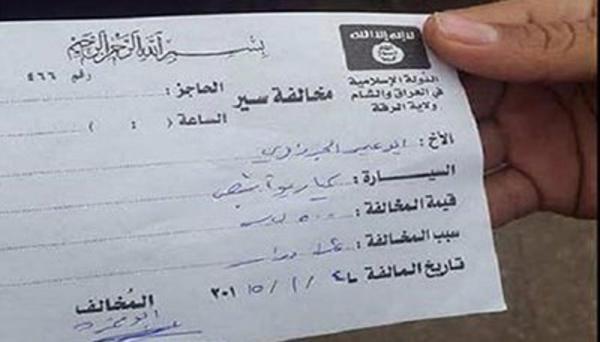 بسم الله الرحمن الرحيم
لا إله إلا الله
الدولة الإسلامية
في العراق والشام
ولاية الرقة
رقم ٤٦٦
مخالفة سير
الحاجز :
الساعة ( : )
الأخ : ابو عمير
السيارة : كيا ريو
قيمة المخالفة : ٥٠٠
سبب المخالفة :
تاريخ المالفة ٢٠١٥ / ١ /
المُخالف
ابو حمزة